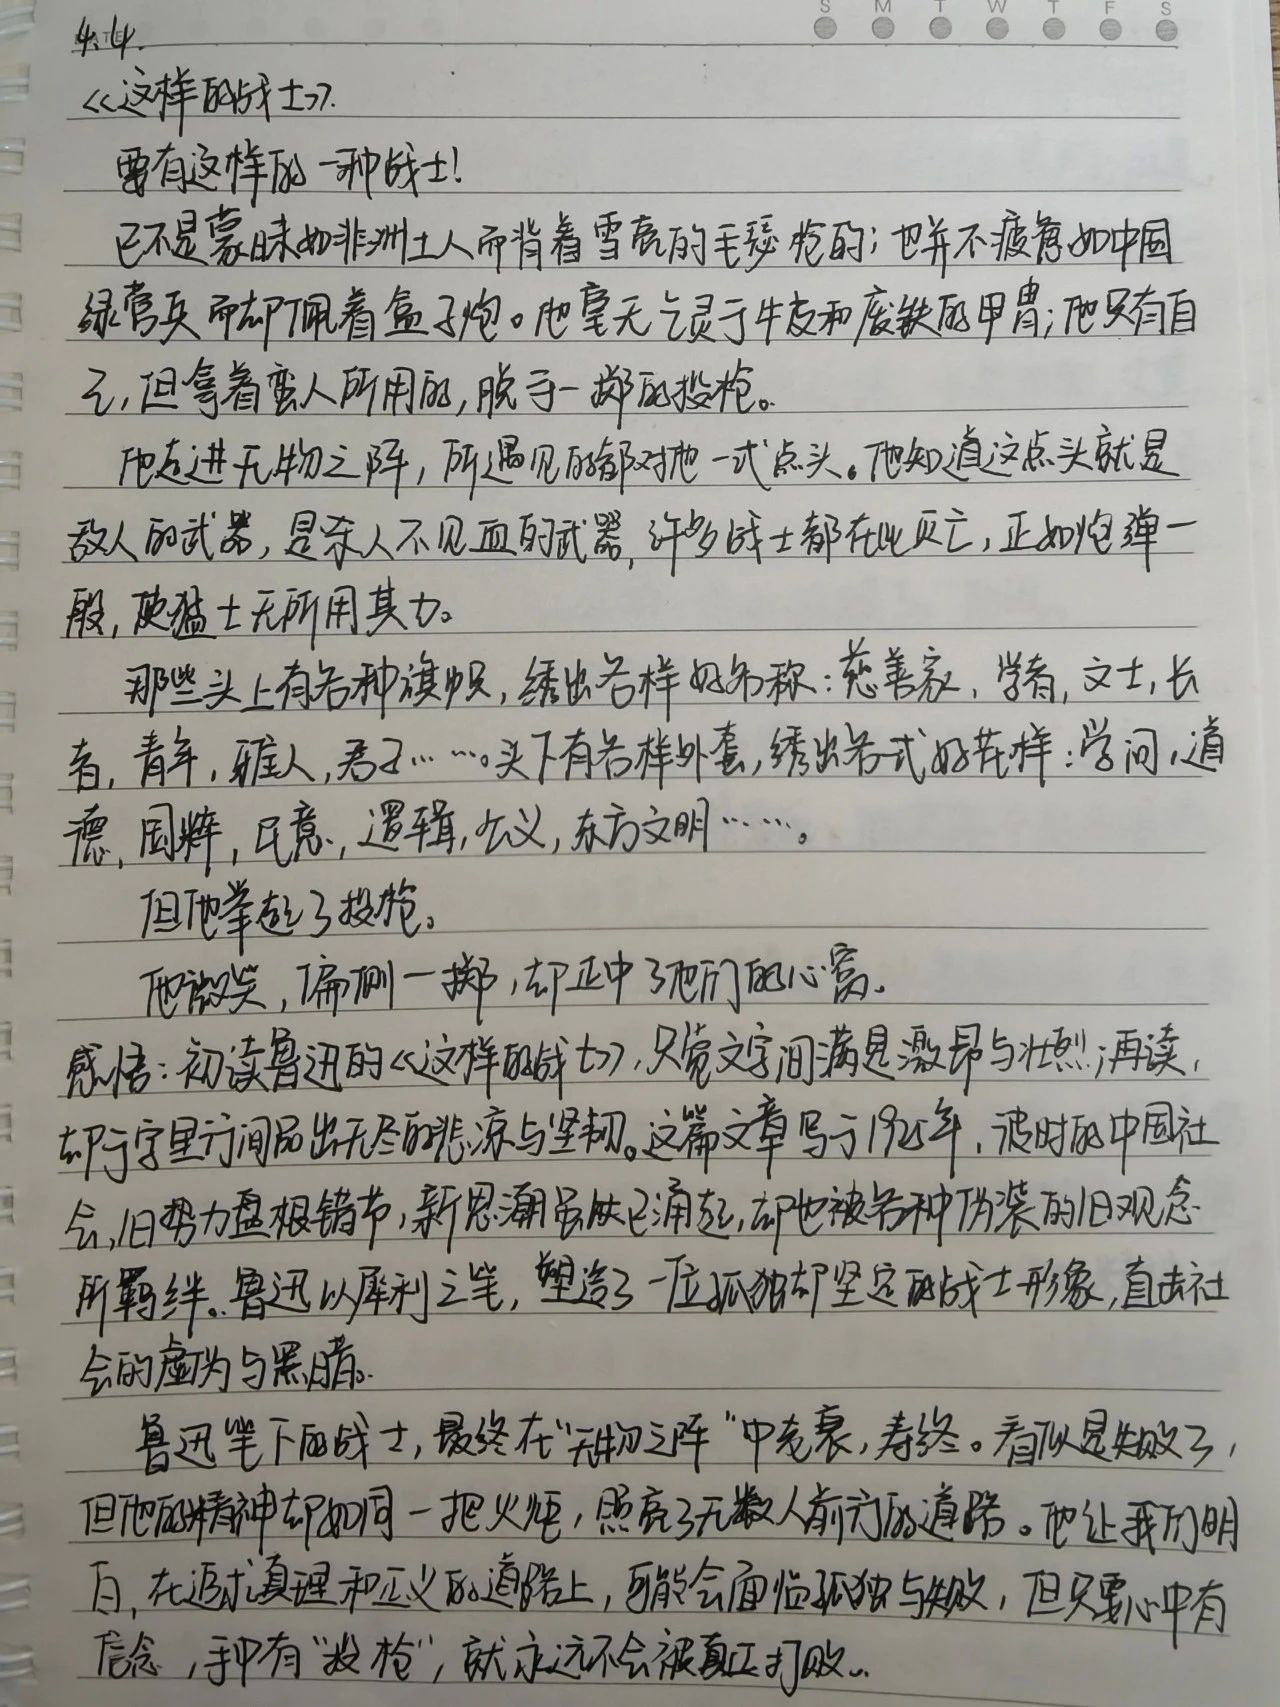 S M T W T F S
4.4.
《这样的战士》.
要有这样的一种战士!
已不是蒙昧如非洲土人而背着雪亮的毛瑟枪的;也并不疲惫如中国
绿营兵而却佩着盒子炮。他毫无乞灵于牛皮和废铁的甲胄;他只有自
己,但拿着蛮人所用的,脱手一掷的投枪。
他走进无物之阵,所遇见的都对他一式点头。他知道这点头就是
敌人的武器,是杀人不见血的武器,许多战士都在此灭亡,正如炮弹一
般,使猛士无所用其力。
那些头上有各种旗帜,绣出各样好名称:慈善家,学者,文士,长
者,青年,雅人,君子……。头下有各样外套,绣出各式好花样:学问,道
德,国粹,民意,逻辑,公义,东方文明……。
但他举起了投枪。
他微笑,偏侧一掷,却正中了他们的心窝。
感悟:初读鲁迅的《这样的战士》,只觉文字间满是激昂与壮烈;再读,
却于字里行间品出无尽的悲凉与坚韧。这篇文章写于1925年,彼时的中国社
会,旧势力盘根错节,新思潮虽然已涌起,却也被各种伪装的旧观念
所羁绊。鲁迅以犀利之笔,塑造了一位孤独却坚定的战士形象,直击社
会的虚伪与黑暗。
鲁迅笔下的战士,最终在“无物之阵”中老衰,寿终。看似是失败了,
但他的精神却如同一把火炬,照亮了无数人前行的道路。他让我们明
白,在追求真理和正义的道路上,可能会面临孤独与失败,但只要心中有
信念,手中有“投枪”,就永远不会被真正打败。